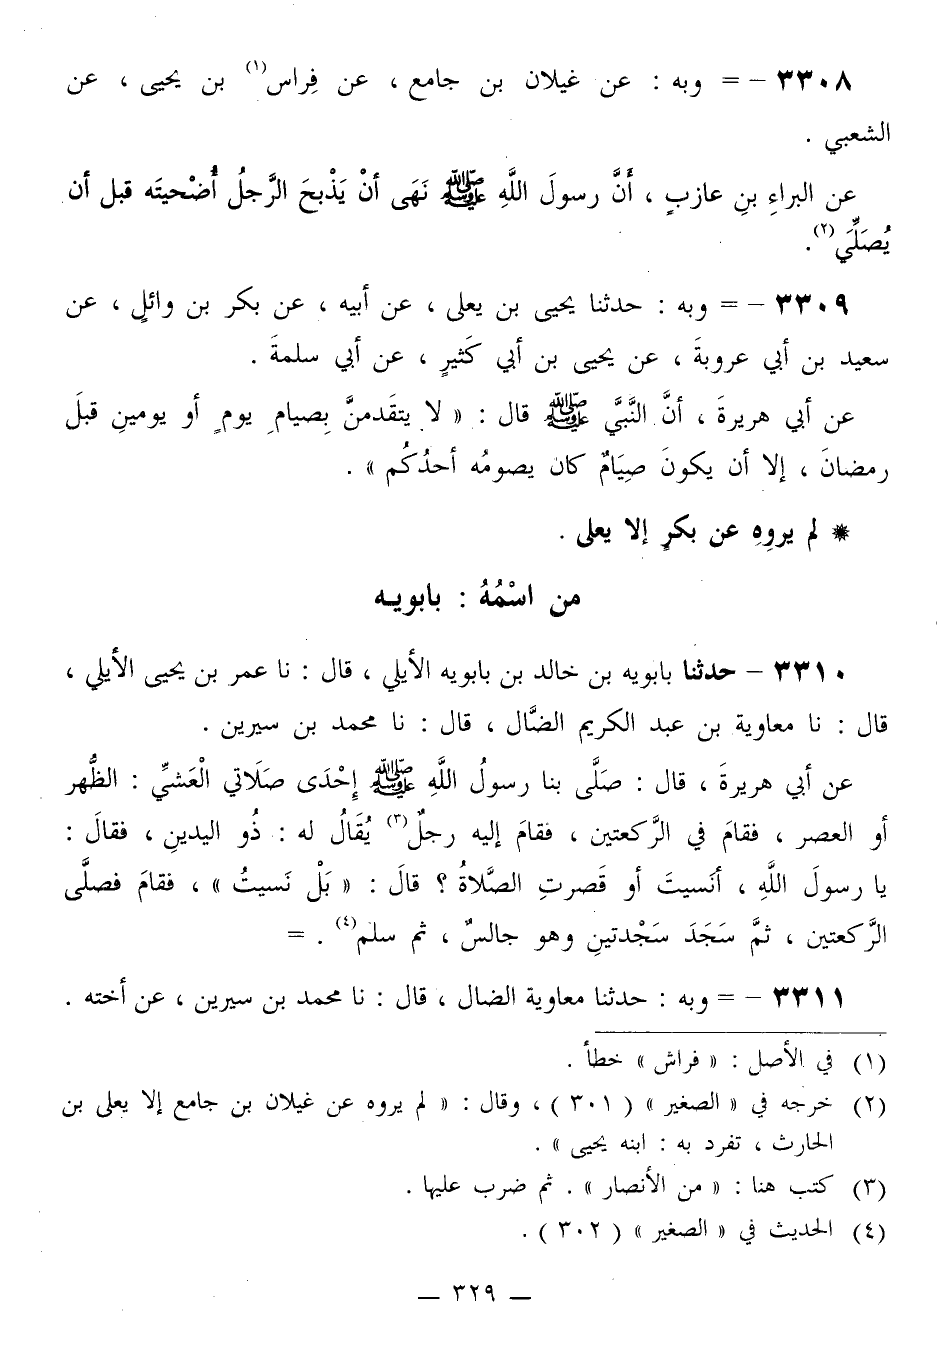 ٣٣٠٨ - = وبه : عن غيلان بن جامع ، عن فِراس(١) بن يحيى ، عن
الشعبي .
عن البراءِ بنِ عازبٍ ، أَنَّ رسولَ اللَّهِ ﷺ نَهَى أنْ يَذْبحَ الرَّجلُ أُضْحيتَه قبل أن
يُصَلِّيَ(٢).
٣٣٠٩ - = وبه : حدثنا يحيى بن يعلى ، عن أبيه ، عن بكر بن وائلٍ ، عن
سعيد بن أبي عروبةَ ، عن يحيى بن أبي كَثيرٍ ، عن أبي سلمةَ .
عن أبي هريرةَ ، أنَّ النَّبيَّ ﷺ قال : « لا يتقَدمنَّ بِصيامِ يومٍ أو يومينِ قبلَ
رمضانَ ، إلا أن يكونَ صِيَامٌ كان يصومُه أحدُكُم » .
* لم يروِهِ عن بكرٍ إلا يعلى .
من اسْمُهُ : بابويـه
٣٣١٠ - حدثنا بابويه بن خالد بن بابويه الأيلي ، قال : نا عمر بن يحيى الأيلي ،
قال : نا معاوية بن عبد الكريم الضَّال ، قال : نا محمد بن سيرين .
عن أبي هريرةَ ، قال : صَلَّى بنا رسولُ اللَّهِ ﷺ إِحْدَى صَلَاتي الْعَشيِّ : الظُّهر
أو العصر ، فقامَ في الرَّكعتين ، فقامَ إليه رجلٌ(٣) يُقَالُ له : ذُو اليدينِ ، فقالَ :
يا رسولَ اللَّهِ ، أنَسيتَ أو قَصرتِ الصَّلاةُ ؟ قالَ : « بَلْ نَسيتُ » ، فقامَ فصلَّى
الرَّكعتين ، ثمَّ سَجَدَ سَجْدتينِ وهو جالسٌ ، ثم سلم(٤) . =
٣٣١١ - = وبه : حدثنا معاوية الضال ، قال : نا محمد بن سيرين ، عن أخته .
(١) في الأصل : « فراش » خطأ .
(٢) خرجه في « الصغير » ( ٣٠١ ) ، وقال : « لم يروه عن غيلان بن جامع إلا يعلى بن
الحارث ، تفرد به : ابنه يحيى » .
(٣) كتب هنا : « من الأنصار » . ثم ضرب عليها .
(٤) الحديث في « الصغير » ( ٣٠٢ ) .
— ٣٢٩ —